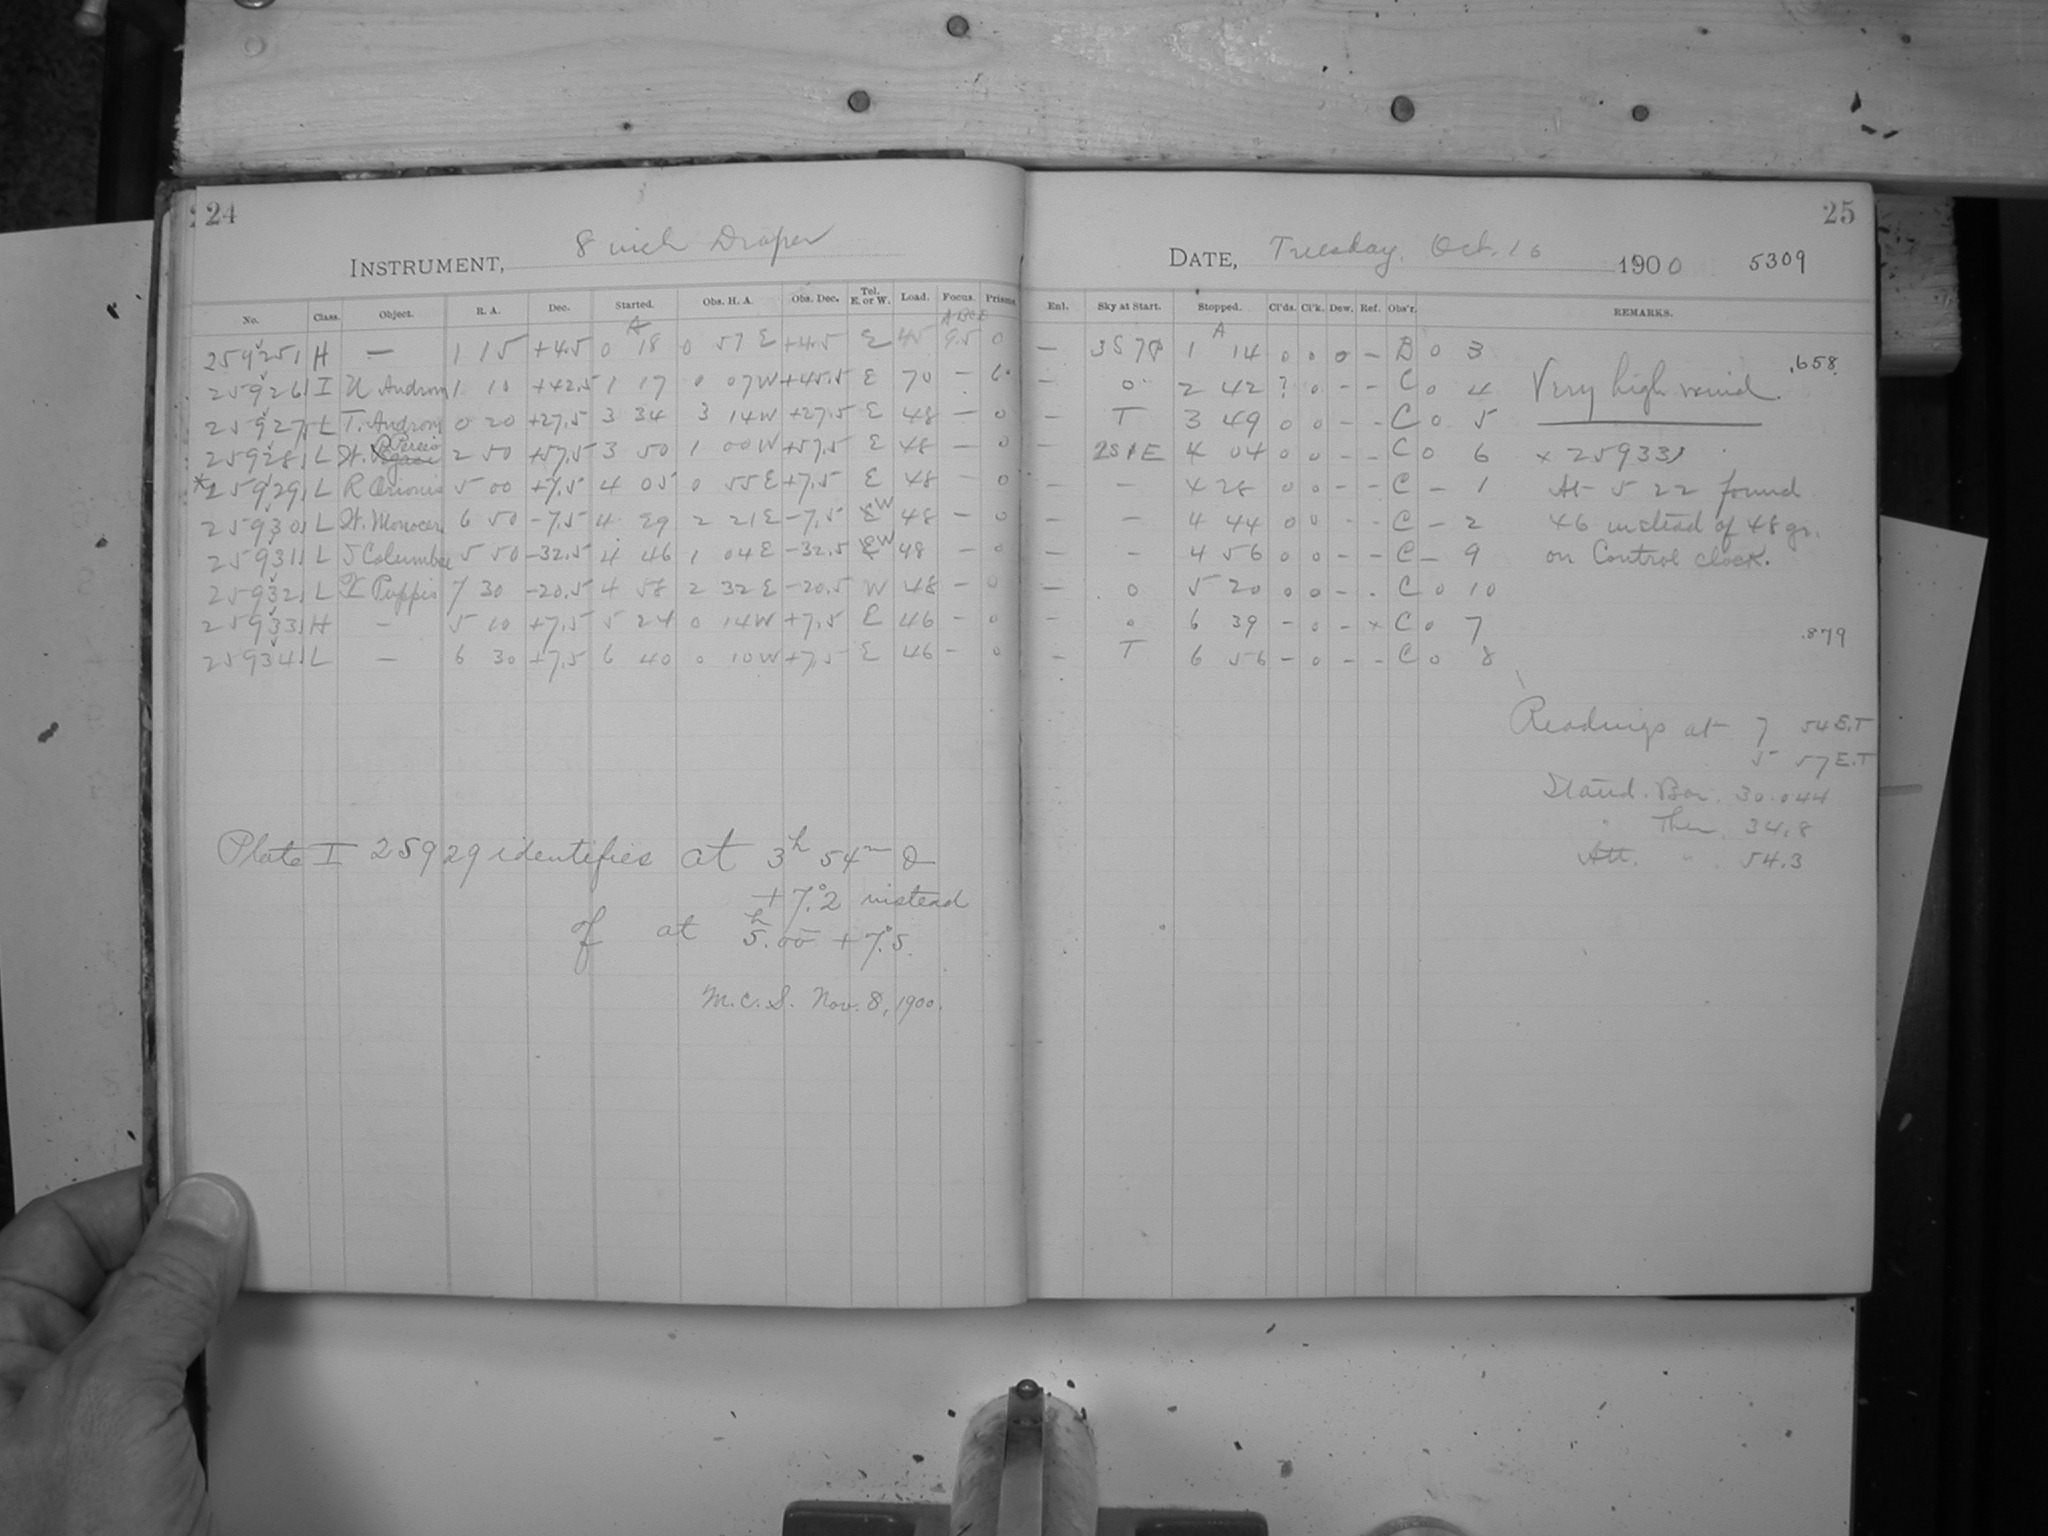 24
INSTRUMENT, 8 inch Draper
No. Class. Object. R. A. Dec. Started. Obs. H. A. Obs. Dec. Tel. E. or W. Load. Focus. Prisms
A
25925 H — 1 15 +45 0 18 0 57 E +45 E 45 9.5 0
25926 I U Androm 1 10 +42.5 1 17 0 07W +45.5 E 70 —
25927 L T. Androm 0 20 +27.5 3 34 3 14W +27.5 E 48 — 0
25928 L 2 50 +57.5 3 50 1 00W +57.5 E 48 — 0
25929 L R Orionis 5 00 +7.5 4 05 0 55E +7.5 E 48 — 0
25930 L 6 50 -7.5 4 29 2 21E -7.5 W 48 — 0
25931 L S Columbae 5 50 -32.5 4 46 1 04E -32.5 W 48 — 0
25932 L Puppis 7 30 -20.5 4 58 2 32E -20.5 W 48 — 0
25933 H — 5 10 +7.5 5 24 0 14W +7.5 E 46 — 0
25934 L — 6 30 +7.5 6 40 0 10W +7.5 E 46 — 0
Plate I 25929 identifies at 3h 54m &
+7°.2 instead
of at 5h.00 +7°.5.
M.C.S. Nov. 8, 1900.
25
DATE, Tuesday, Oct. 16 1900 5309
Enl. Sky at Start. Stopped. Cl'ds. Cl'k. Dew. Ref. Obs'r. REMARKS.
A
— 1 14 0 0 0 — B 0 3 .658
— 0 2 42 ? 0 - - C 0 4 Very high wind.
— T 3 49 0 0 - - C 0 5
— 2S1E 4 04 0 0 - - C 0 6 x 25933
— — 4 28 0 0 - - C — 1 At 5 22 found
— — 4 44 0 0 - - C — 2 46 instead of 48 gr.
— — 4 56 0 0 - - C — 9 on Control clock.
— 0 5 20 0 0 - - C 0 10
— 0 6 39 - 0 - x C 0 7
— T 6 56 - 0 - - C 0 8 .879
Readings at 7 54 E.T
5 57 E.T
Stand. Bar. 30.044
" Ther. 34.8
Att. " 54.3